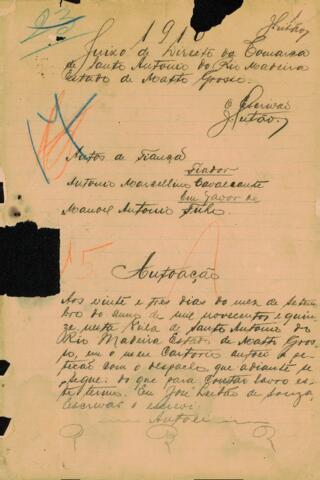 23
1918
Juizo de Direito da Comarca
de Santo Antonio do Rio Madeira
Estado de Matto Grosso
O Escrivão
Leitão
Autos de Fiança
Fiador
Antonio Marcellino Cavalcante
Em favor de
Manoel Antonio
15
Autoação
Aos vinte e tres dias do mez de setem
bro do anno de mil novecentos e quin
ze, nesta Villa de Santo Antonio do
Rio Madeira Estado de Matto Gros
so, em o meu Cartorio autoei a pe
tição com o despacho que adiante se
segue: do que para constar lavro es
te termo. Eu José Leitão de Souza,
Escrivão o escrevi.
Autoei